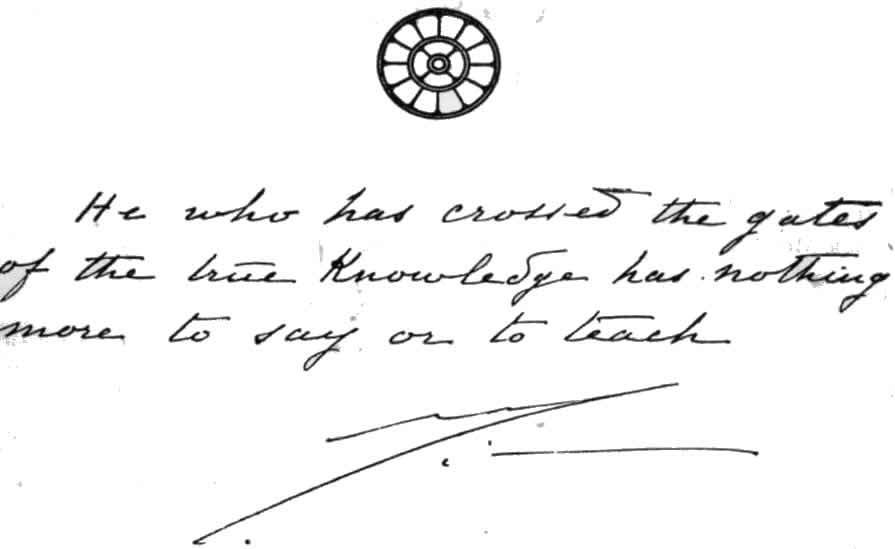 He who has crossed the gates
of the true Knowledge has nothing
more to say or to teach